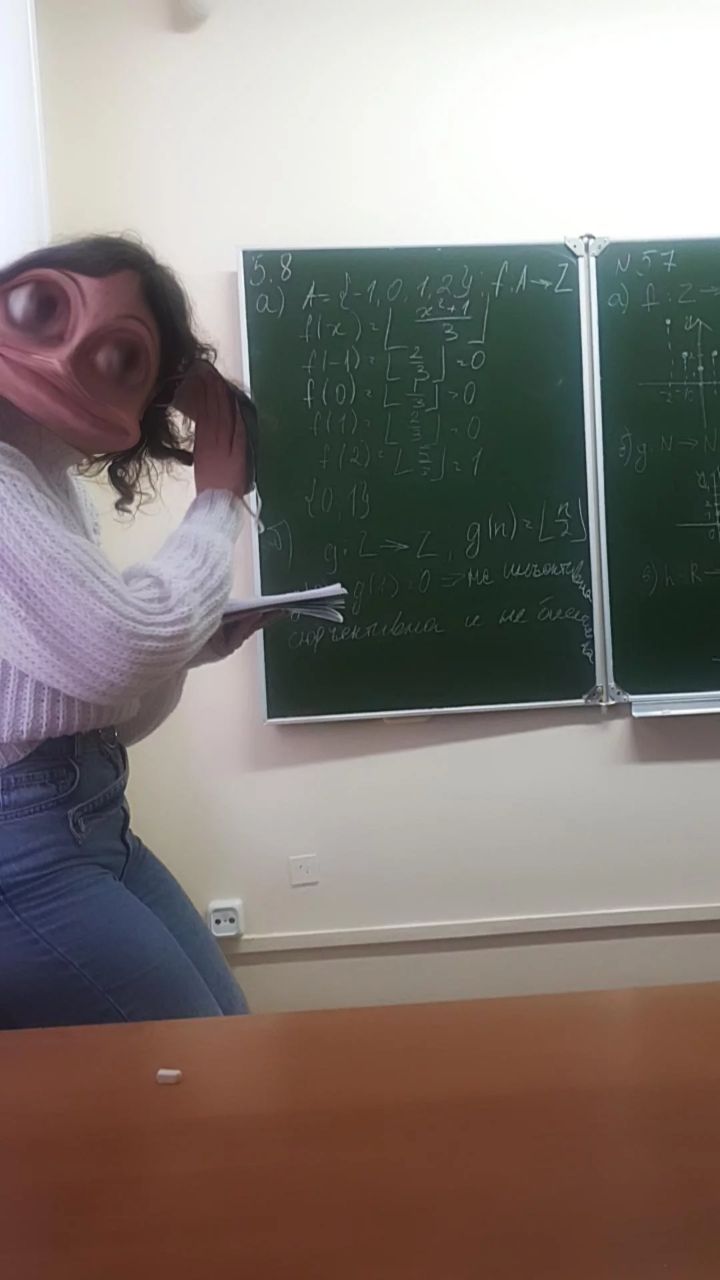 5.8
а) A = {-1, 0, 1, 2}, f: A → Z
f(x) = ⌊(x²+1)/3⌋
f(-1) = ⌊2/3⌋ = 0
f(0) = ⌊1/3⌋ = 0
f(1) = ⌊2/3⌋ = 0
f(2) = ⌊5/3⌋ = 1
{0, 1}
б) g: Z → Z, g(n) = ⌊n/2⌋
g(1) = 0 ⇒ не инъективна
сюръективна и не
N 5.7
а) f: Z →
g: N → N
h: R →